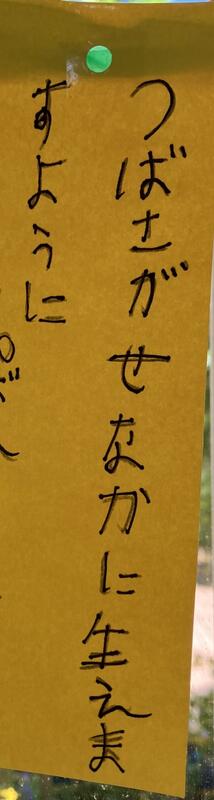 つばさがせなかに生えま
すように